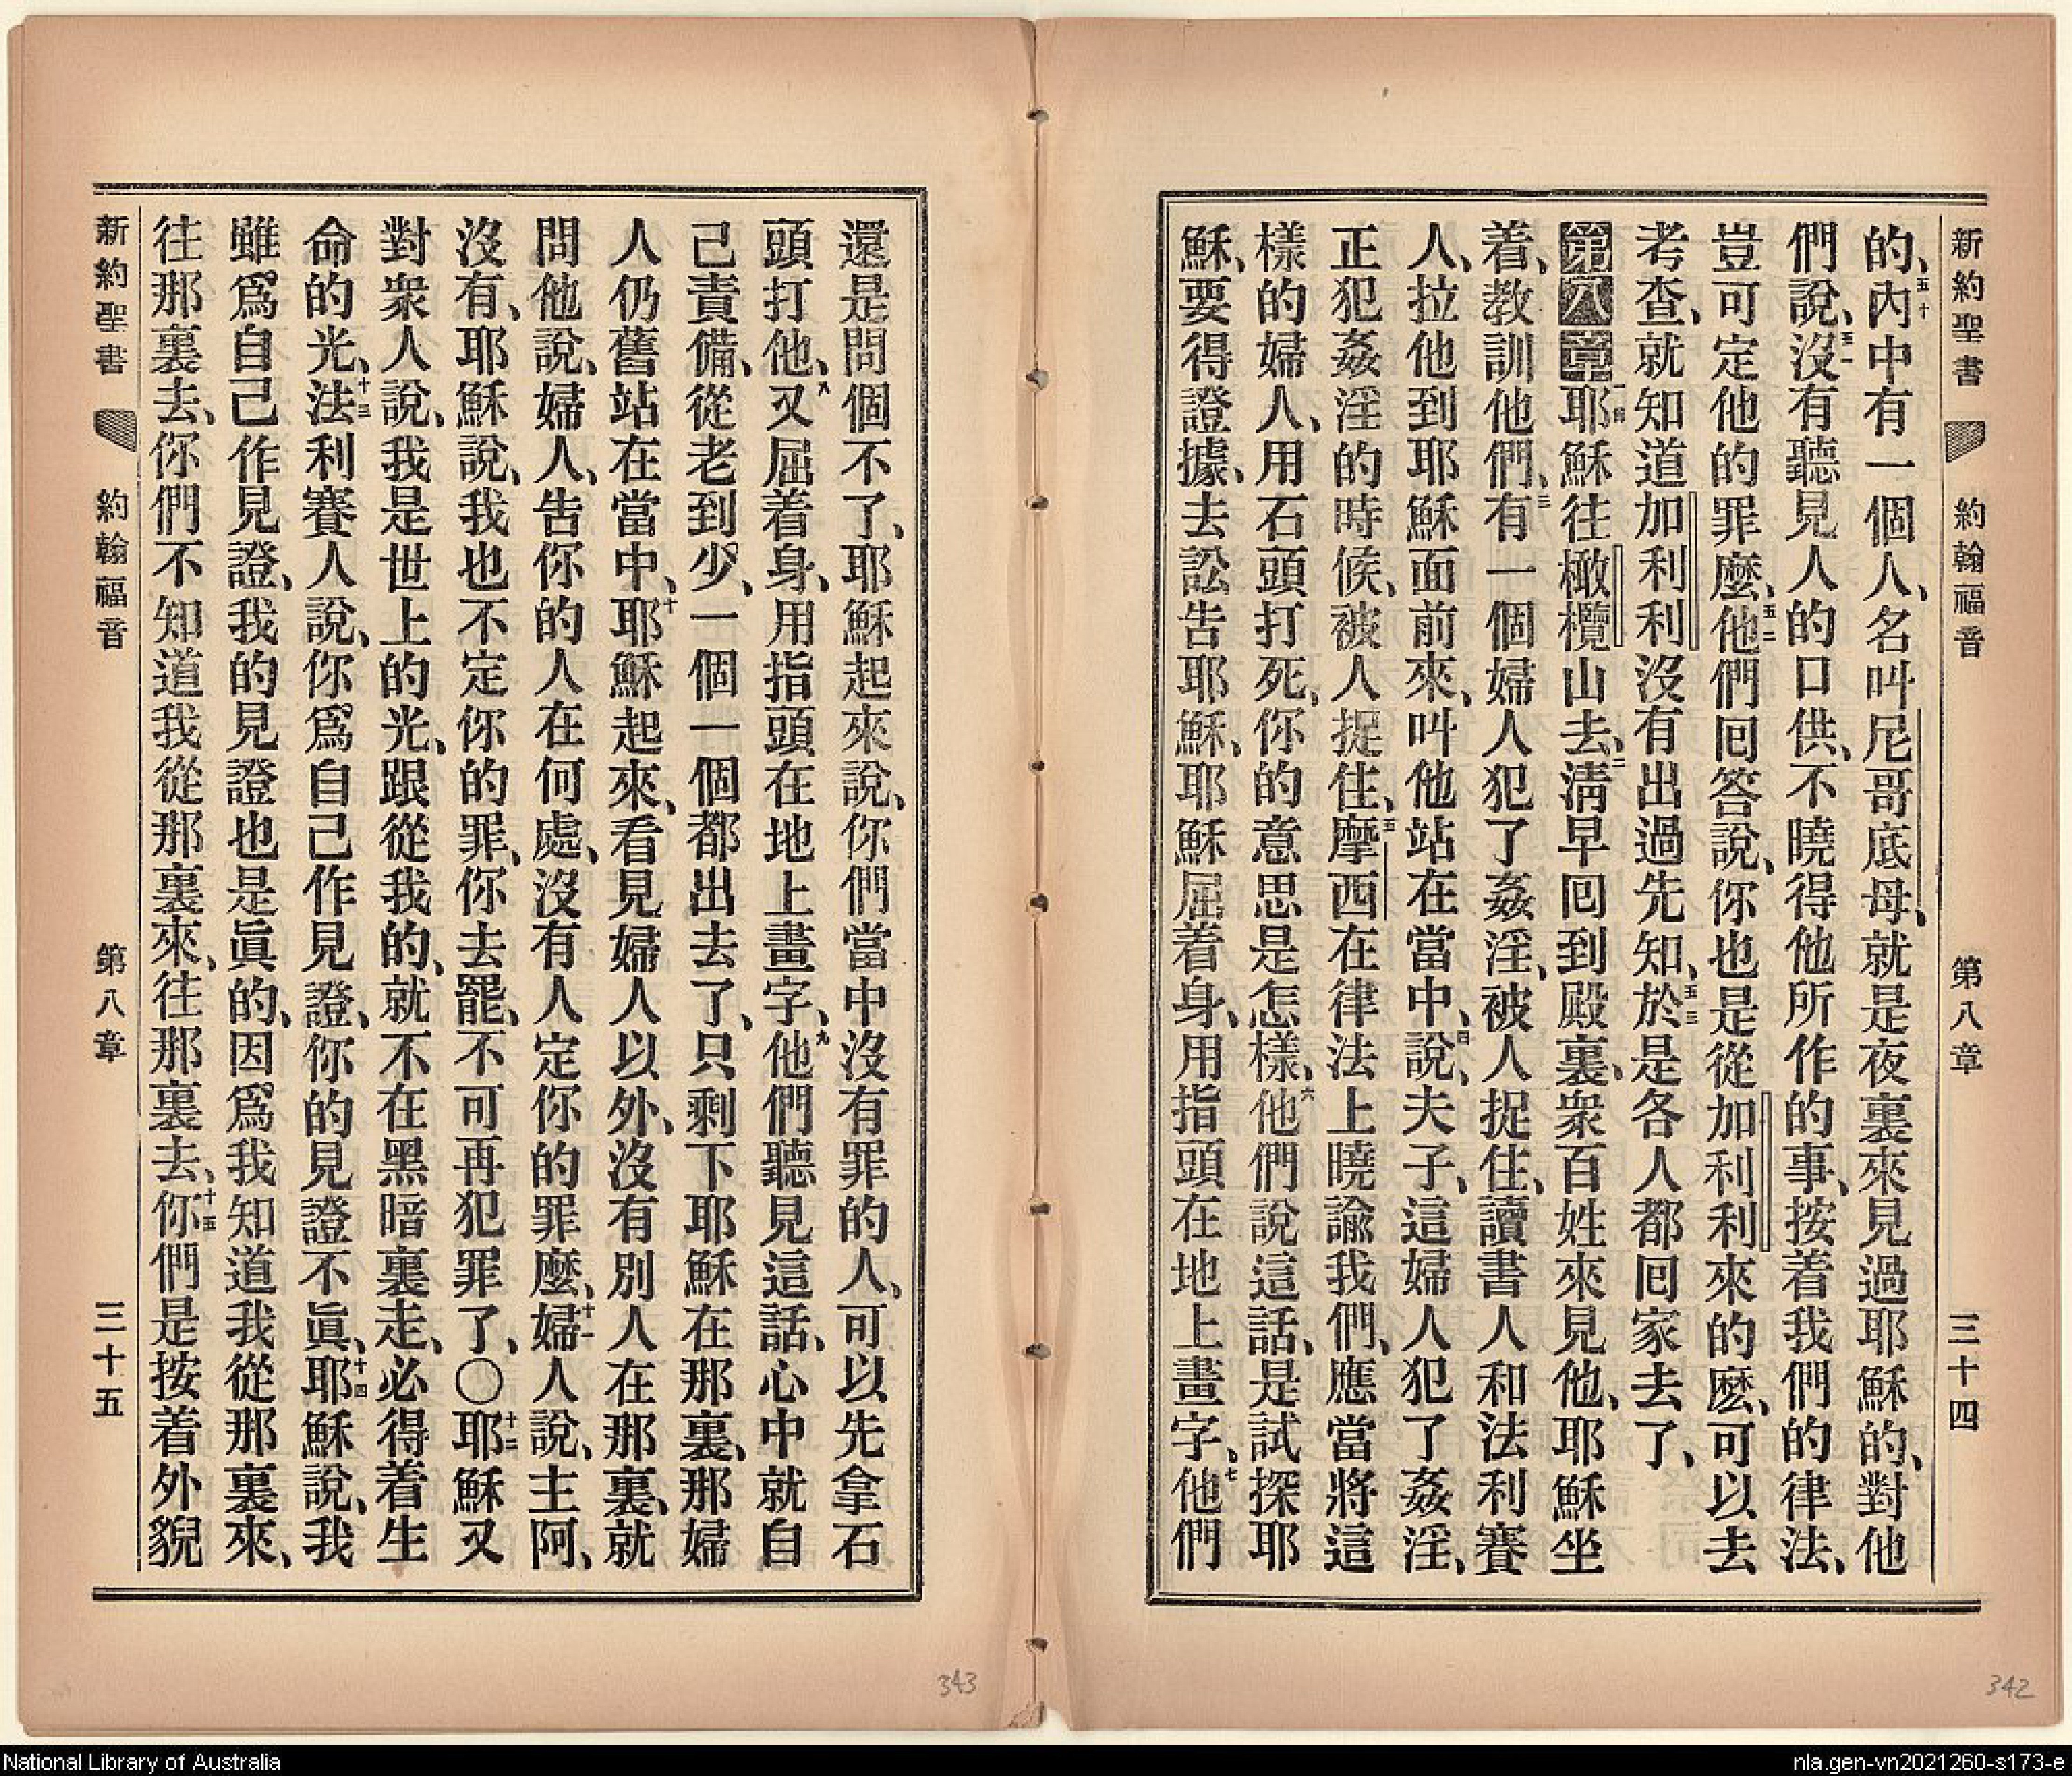 新約聖書 約翰福音 第八章 三十四
的、五十內中有一個人、名叫尼哥底母、就是夜裏來見過耶穌的、對他
們說、五一沒有聽見人的口供、不曉得他所作的事、按着我們的律法、
豈可定他的罪麼、五二他們囘答說、你也是從加利利來的麼、可以去
考查、就知道加利利沒有出過先知、五三於是各人都囘家去了、
第八章一耶穌往橄欖山去、二淸早囘到殿裏、衆百姓來見他、耶穌坐
着、教訓他們、三有一個婦人犯了姦淫、被人捉住、讀書人和法利賽
人、拉他到耶穌面前來、叫他站在當中、四說、夫子、這婦人犯了姦淫、
正犯姦淫的時候、被人捉住、五摩西在律法上曉諭我們、應當將這
樣的婦人、用石頭打死、你的意思是怎樣、六他們說這話、是試探耶
穌、要得證據、去訟告耶穌、耶穌屈着身、用指頭在地上畫字、七他們
還是問個不了、耶穌起來說、你們當中沒有罪的人、可以先拿石
頭打他、八又屈着身、用指頭在地上畫字、九他們聽見這話、心中就自
己責備、從老到少、一個一個都出去了、只剩下耶穌在那裏、那婦
人仍舊站在當中、十耶穌起來、看見婦人以外、沒有別人在那裏、就
問他說、婦人、告你的人在何處、沒有人定你的罪麼、十一婦人說、主阿、
沒有、耶穌說、我也不定你的罪、你去罷、不可再犯罪了、〇十二耶穌又
對衆人說、我是世上的光、跟從我的、就不在黑暗裏走、必得着生
命的光、十三法利賽人說、你爲自己作見證、你的見證不眞、十四耶穌說、我
雖爲自己作見證、我的見證也是眞的、因爲我知道我從那裏來、
往那裏去、你們不知道我從那裏來、往那裏去、十五你們是按着外貌
新約聖書 約翰福音 第八章 三十五
343
342
National Library of Australia
nla.gen-vn2021260-s173-e